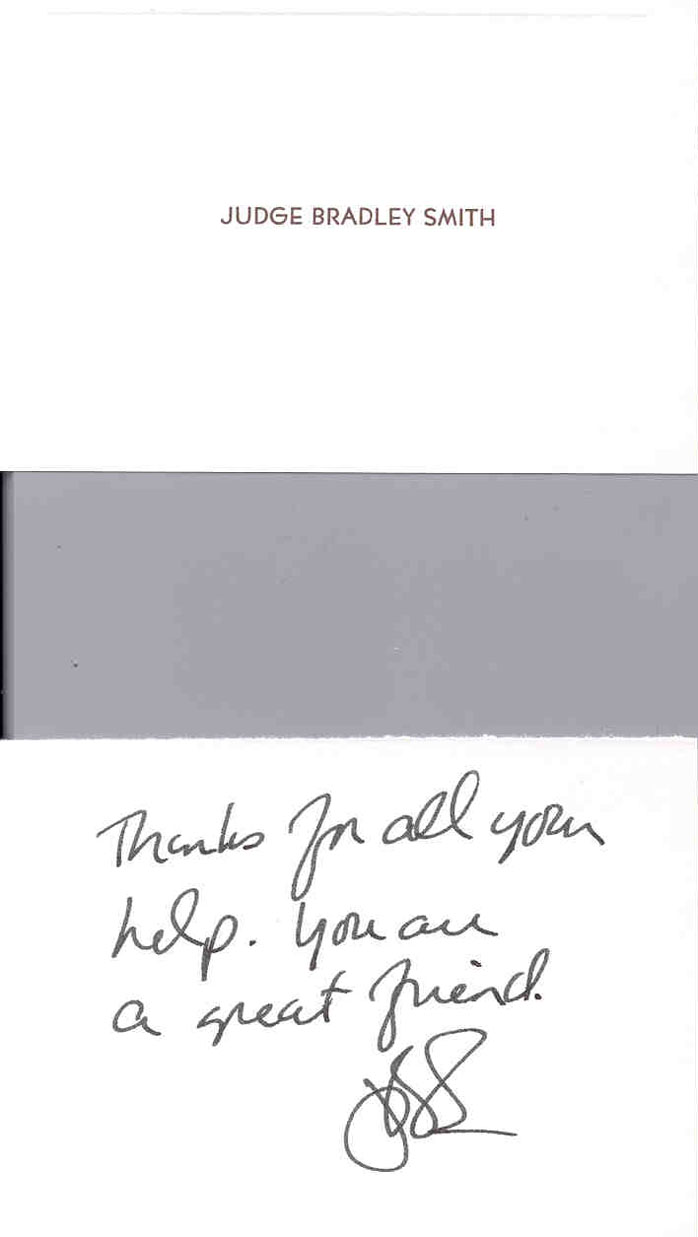 JUDGE BRADLEY SMITH
Thanks for all your
help. You are
a great friend.